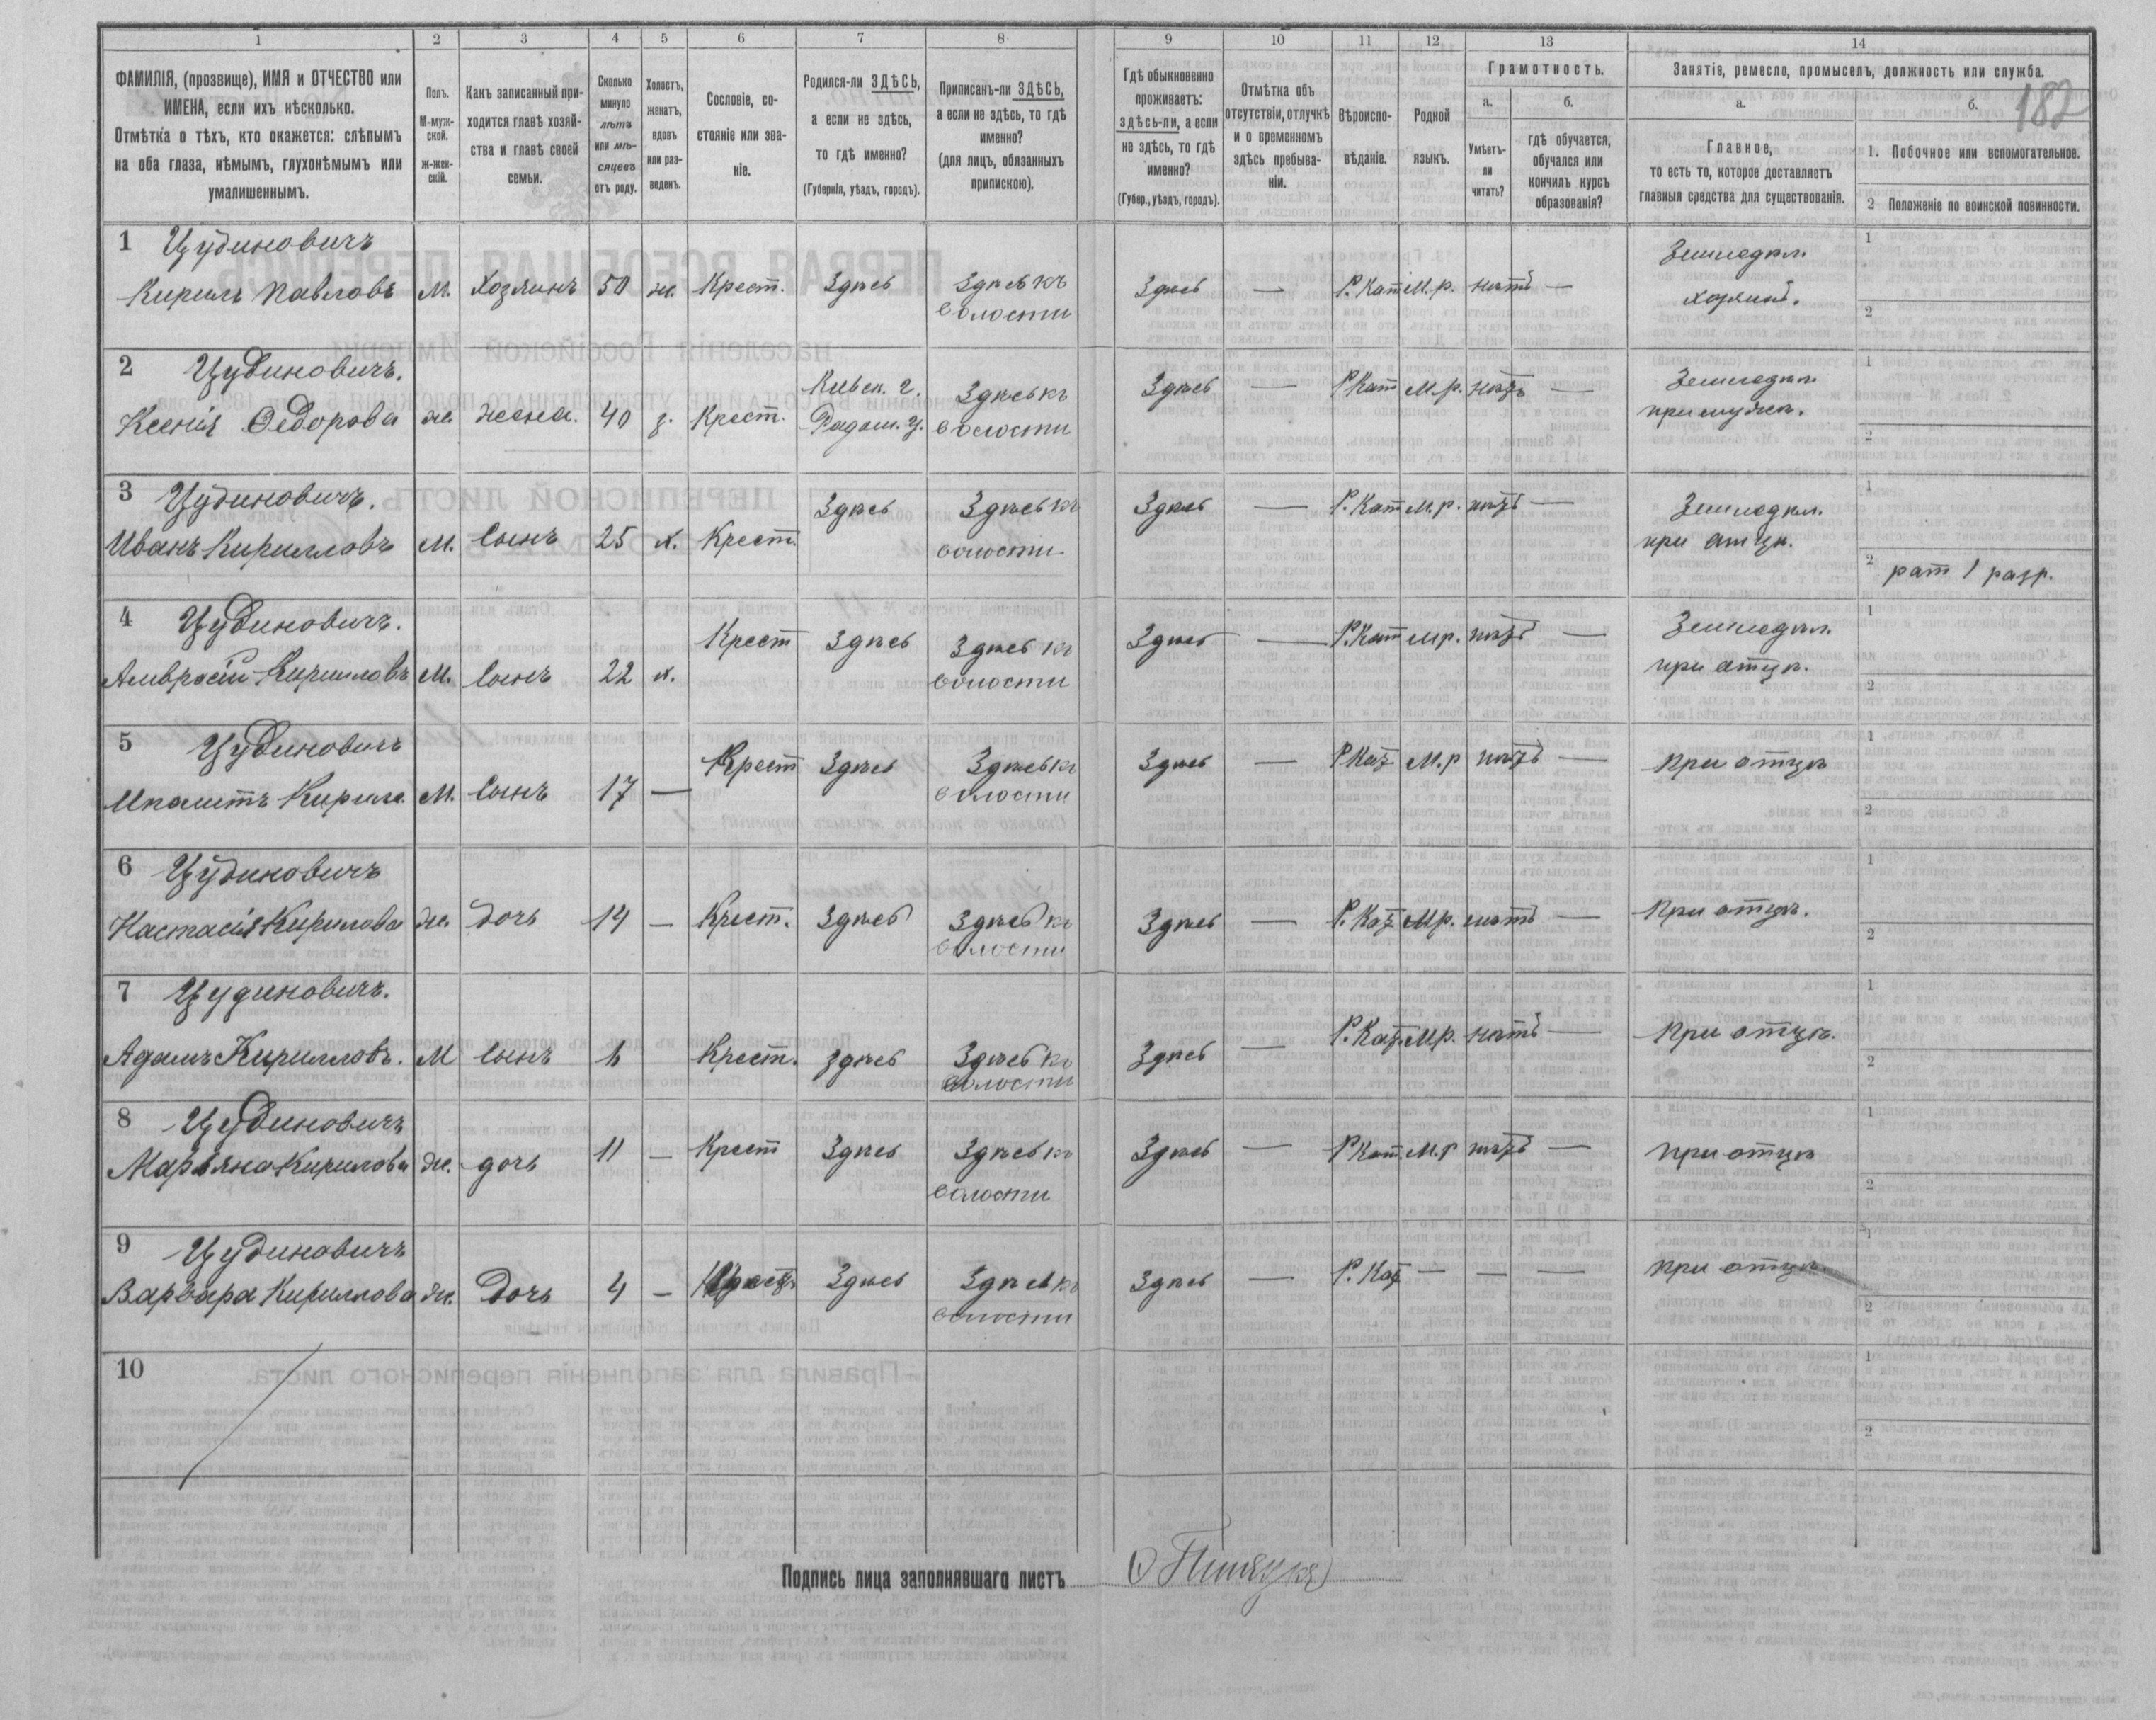 1 2 3 4 5 6 7 8 9 10 11 12 13 14
ФАМИЛІЯ, (прозвище), ИМЯ и ОТЧЕСТВО или
ИМЕНА, если ихъ нѣсколько.
Отмѣтка о тѣхъ, кто окажется: слѣпымъ
на оба глаза, нѣмымъ, глухонѣмымъ или
умалишеннымъ.
Полъ.
М-муж-
ской.
ж-жен-
скій.
Какъ записанный при-
ходится главѣ хозяй-
ства и главѣ своей
семьи.
Сколько
минуло
лѣтъ
или мѣ-
сяцевъ
отъ роду.
Холостъ,
женатъ,
вдовъ
или раз-
веденъ.
Сословіе, со-
стояніе или зва-
ніе.
Родился-ли ЗДѢСЬ,
а если не здѣсь,
то гдѣ именно?
(Губернія, уѣздъ, городъ).
Приписанъ-ли ЗДѢСЬ,
а если не здѣсь, то гдѣ
именно?
(для лицъ, обязанныхъ
припискою).
Гдѣ обыкновенно
проживаетъ:
здѣсь-ли, а если
не здѣсь, то гдѣ
именно?
(Губер., уѣздъ, городъ).
Отмѣтка объ
отсутствіи, отлучкѣ
и о временномъ
здѣсь пребыва-
ніи.
Вѣроиспо-
вѣданіе.
Родной
языкъ.
Грамотность.
а.
Умѣетъ-
ли
читать?
б.
гдѣ обучается,
обучался или
кончилъ курсъ
образованія?
Занятіе, ремесло, промыселъ, должность или служба.
182
а.
Главное,
то есть то, которое доставляетъ
главныя средства для существованія.
б.
1. Побочное или вспомогательное.
2 Положеніе по воинской повинности.
1 Цудиновичъ
Кирилъ Павловъ М. Хозяинъ 50 ж. Крест. Здѣсь Здѣсь къ
волости
Здѣсь — Р. Кат М.р. нѣтъ —
Земледѣл.
хозяинъ.
1
2
2 Цудиновичъ.
Ксенія Федорова ж. жена. 40 з. Крест.
Кіевск. г.
Радом. у.
Здѣсь къ
волости
Здѣсь — Р Кат М.р. нѣтъ —
Земледѣл.
при мужѣ.
1
2
3 Цудиновичъ.
Иванъ Кирилловъ М. Сынъ 25 х. Крест. Здѣсь Здѣсь къ
волости
Здѣсь — Р. Кат М.р. нѣтъ —
Земледѣл.
при отцѣ.
1
2 рат 1 разр.
4 Цудиновичъ.
Амвросій Кирилловъ М. Сынъ 22 х. Крест Здѣсь Здѣсь къ
волости
Здѣсь — Р. Кат М.р. нѣтъ —
Земледѣл.
при отцѣ.
1
2
5 Цудиновичъ
Иполитъ Кирил. М. Сынъ 17 — Крест Здѣсь Здѣсь къ
волости
Здѣсь — Р Кат М.р нѣтъ — при отцѣ
1
2
6 Цудиновичъ
Настасія Кирилова ж. дочь 14 — Крест. Здѣсь Здѣсь къ
волости
Здѣсь — Р. Кат М.р. нѣтъ — при отцѣ.
1
2
7 Цудиновичъ.
Адамъ Кирилловъ. М Сынъ Крест. здѣсь Здѣсь къ
волости
Здѣсь — Р. Кат. М.р. нѣтъ — при отцѣ.
1
2
8 Цудиновичъ
Маріяна Кирилова ж. дочь 11 — Крест Здѣсь Здѣсь къ
волости
Здѣсь — Р Кат М.р нѣтъ — при отцѣ
1
2
9 Цудиновичъ
Варвара Кириллова ж. Дочь 4 — Крест. Здѣсь Здѣсь къ
волости
Здѣсь — Р. Кат — — — при отцѣ
1
2
10
1
2
Подпись лица заполнявшаго листъ